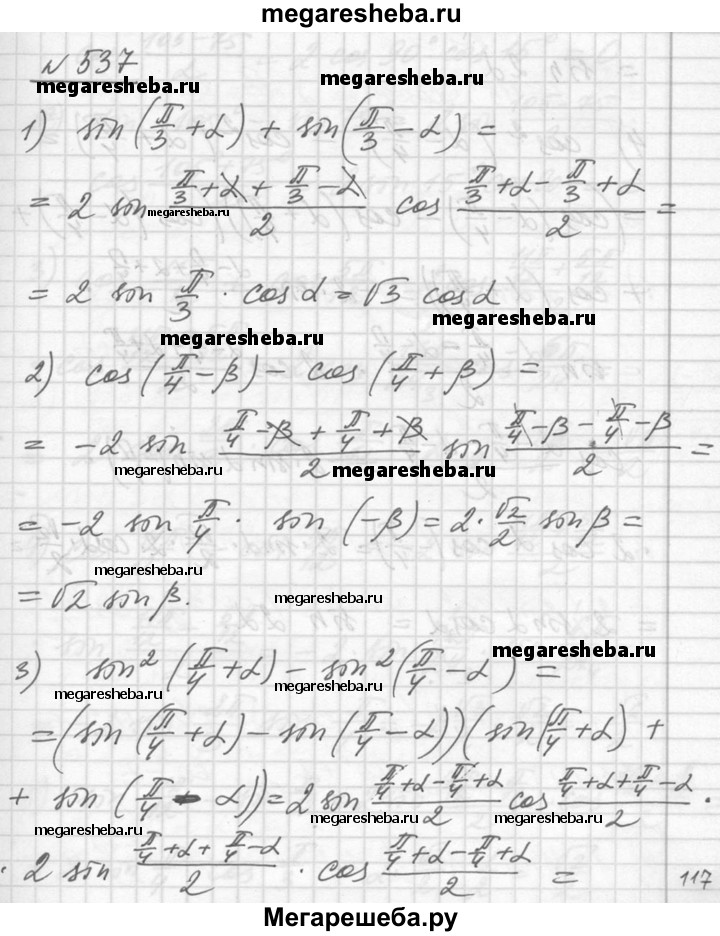 megaresheba.ru
№ 537
megaresheba.ru megaresheba.ru
1) sin(π/3 + α) + sin(π/3 − α) =
= 2 sin (π/3 + α + π/3 − α)/2 cos (π/3 + α − π/3 + α)/2 =
megaresheba.ru
= 2 sin π/3 · cos α = √3 cos α
megaresheba.ru megaresheba.ru
2) cos(π/4 − β) − cos(π/4 + β) =
= −2 sin (π/4 − β + π/4 + β)/2 sin (π/4 − β − π/4 − β)/2 =
megaresheba.ru megaresheba.ru
= −2 sin π/4 · sin(−β) = 2 · √2/2 sin β =
megaresheba.ru
= √2 sin β. megaresheba.ru
megaresheba.ru
3) sin²(π/4 + α) − sin²(π/4 − α) =
megaresheba.ru megaresheba.ru
= (sin(π/4 + α) − sin(π/4 − α))(sin(π/4 + α) +
+ sin(π/4 − α)) = 2 sin (π/4 + α − π/4 + α)/2 cos (π/4 + α + π/4 − α)/2 ·
megaresheba.ru megaresheba.ru megaresheba.ru
· 2 sin (π/4 + α + π/4 − α)/2 · cos (π/4 + α − π/4 + α)/2 =
117
Мегарешеба.ру